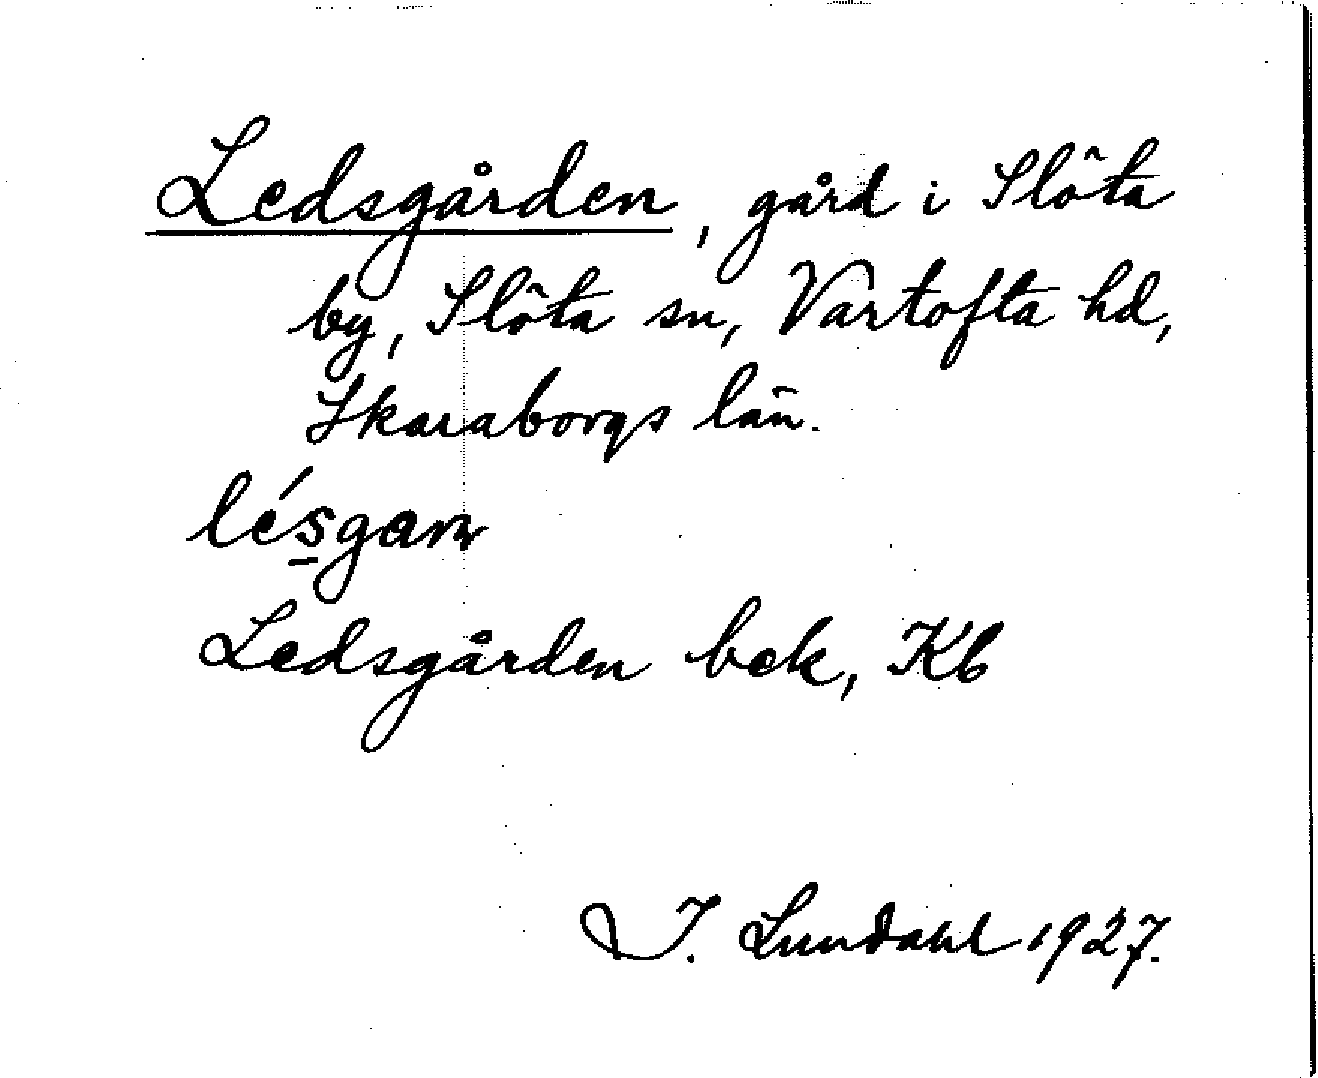 Ledsgården, gård i Slöta
by, Slöta sn, Vartofta hd,
Skaraborgs län.
lésgarn
Ledsgården bek, Kb
I. Lundahl 1927.